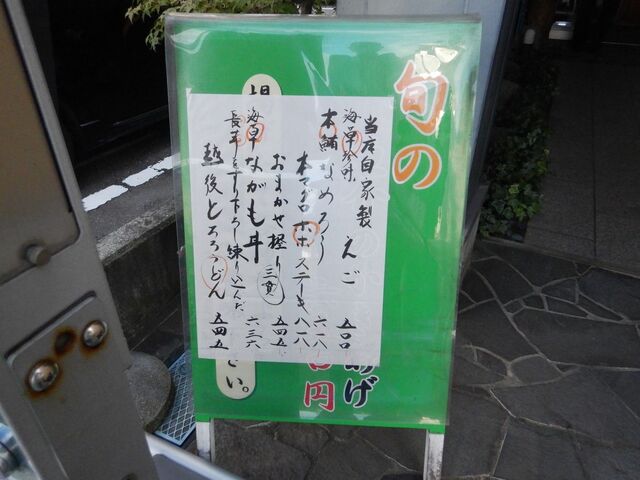 旬の
当店自家製
海草珍味 えご 五〇〇
本鮪 なめろう 六一八
本マグロ ホホステーキ 八一八
おまかせ握り 三貫 五四五
海草 ながも丼 六三六
長芋をすり下ろし練り込んだ
越後とろろうどん 五四五
あげ
円
さい。